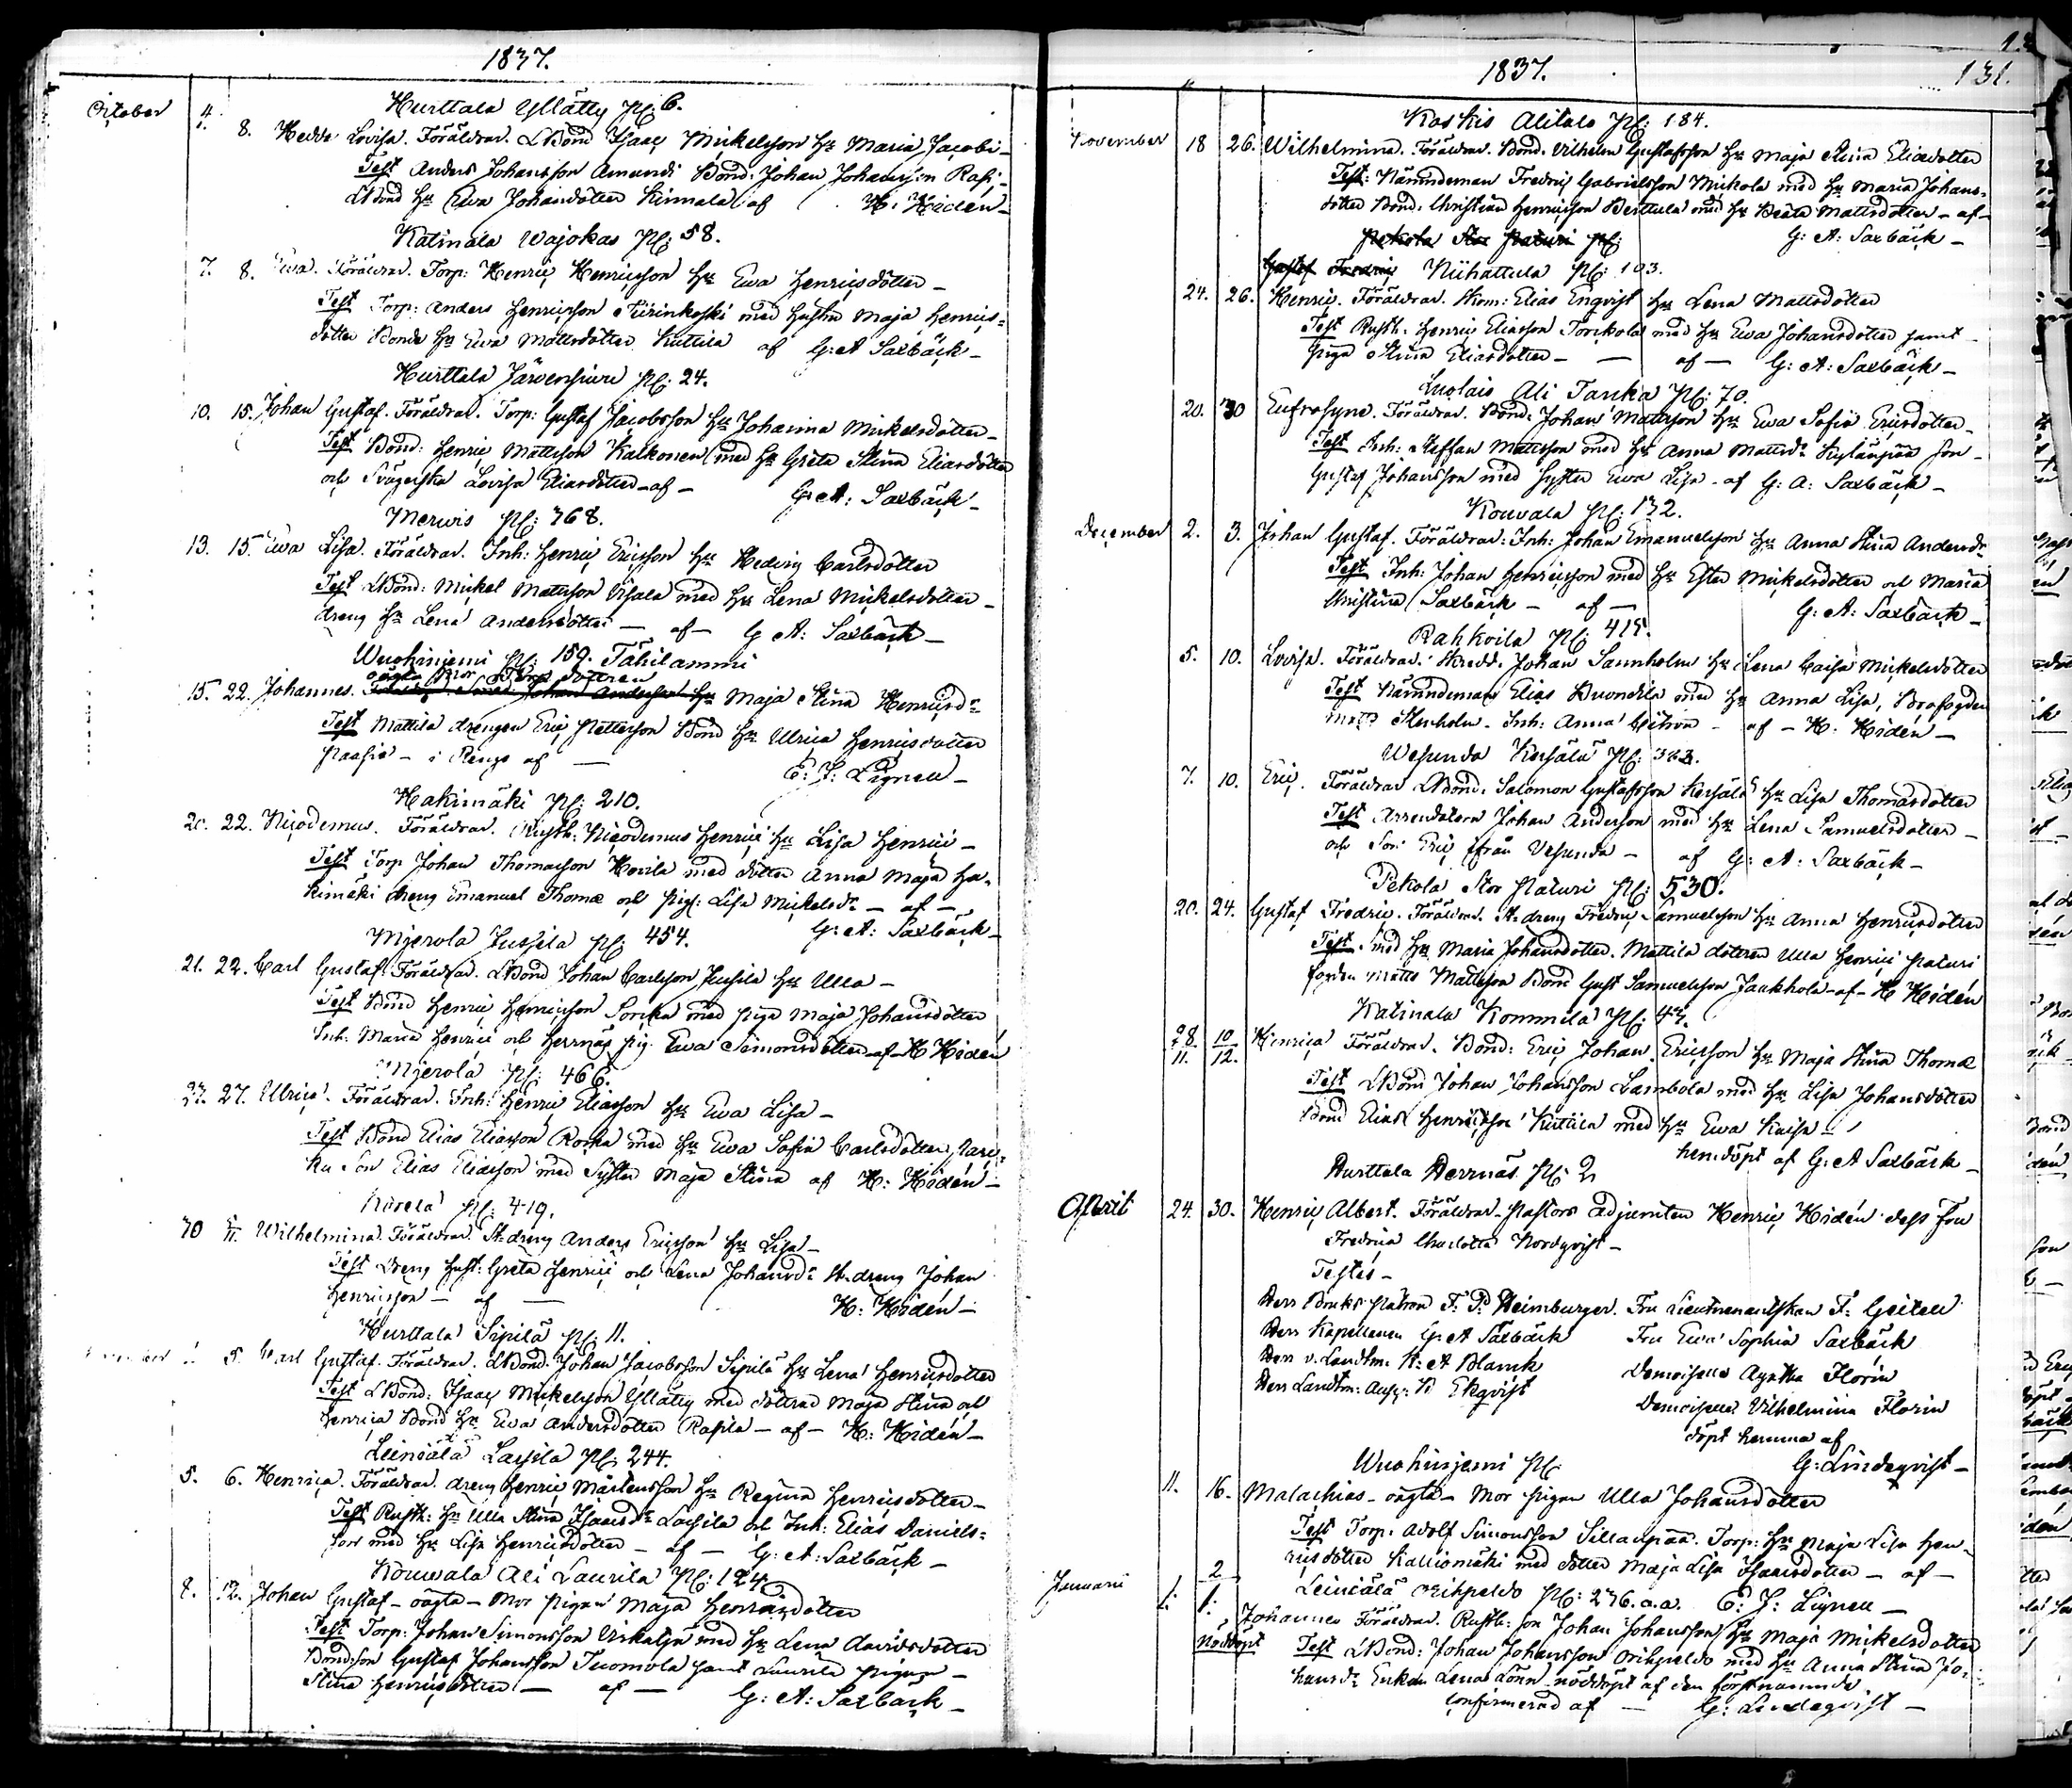 1837.
Hurttala Yllätty N: 6.
October 4. 8. Hedda Lovisa. Föräldrar. LBond Isaac Mickelsson Hu Maria Jacobi
Test Anders Johansson Amundi Bond: Johan Johansson Rapi-
LBond Hu Ewa Johansdotter Kinnala af H: Hidén
Katinala Wajokas N: 58.
7. 8. Ewa. Föräldrar. Torp: Henric Henricsson Hu Ewa Henricsdotter
Test Torp: Anders Henricsson med hustru Maja Henrics=
dotter Bonde Hu Ewa Mattsdotter Kuttila af G: A Saxbäck
Hurttala Järvenpään N: 24.
10. 15. Johan Gustaf. Föräldrar. Torp: Gustaf Jacobsson Hu Johanna Mickelsdotter
Test Bond: Henric Mattsson Kalkonen med Hu Greta Stina Eliasdotter
och Svägerska Lovisa Eliasdotter af G: A: Saxbäck
Merwis N: 768.
13. 15. Ewa Lisa. Föräldrar. Inh: Henric Ericsson Hu Hedvig Carlsdotter
Test LBond: Mickel Mattsson Ojala med Hu Lena Mickelsdotter
dreng Hu Lena Andersdotter af G A: Saxbäck
Wuohiniemi N: 159. Tähilammi
oägta Mor Torp dottren
15. 22. Johannes. Föräldrar. Johan Andersson Hu Maja Stina Henricsd:r
Test Mattila drengen Eric Pettersson Bond Hu Ulrica Henricsdotter
Paasio i Rengo af E: J: Lignell
Hakimäki N: 210.
20. 22. Nicodemus. Föräldrar. Rusth: Nicodemus Henrici Hu Lisa Henrici
Test Torp Johan Thomasson Hovila med dotter Anna Maja Ha-
kimäki dreng Emanuel Thomæ och Pig: Lisa Mickelsd:r af
Mierola Jussila N: 454. G: A: Saxbäck
21. 22. Carl Gustaf. Föräldrar. LBond Johan Carlsson Jussila Hu Ulla
Test Bond Henric Henricsson Sorika med piga Maja Johansdotter
Inh: Maria Henrici och Herrnäs Pig: Ewa Simonsdotter af H Hidén
Mierola N: 466.
27. 27. Ulrica. Föräldrar. Inh: Henric Eliasson Hu Ewa Lisa
Test Bond Elias Eliasson Roska med Hu Ewa Sofia Carlsdotter
ku Son Elias Eliasson med Syster Maja Stina af H: Hidén
N: 419.
30 Wilhelmina. Föräldrar. St:dreng Anders Ericsson Hu Lisa
Test Dreng hust: Greta Henrici och Lena Johansd:r St:dreng Johan
Henricsson af H: Hidén
Hurttala Sipilä N: 11.
5. Carl Gustaf. Föräldrar. LBond: Johan Jacobsson Sipilä Hu Lena Henricsdotter
Test LBond: Isaac Mickelsson Yllätty med döttrar Maja Stina och
Henrica Bond Hu Ewa Andersdotter Rapila af H: Hidén
Leiniälä Lassila N: 244.
5. 6. Henrica. Föräldrar. dreng Henric Mårtensson Hu Regina Henricsdotter
Test Rusth: Hu Ulla Stina Isaacsd:r Lassila och Inh: Elias Daniels=
son med Hu Lisa Henricsdotter af G: A: Saxbäck
Kouwala Ali Laurila N: 124
8. 12. Johan Gustaf oägta Mor pigan Maja Henricsdotter
Test Torp: Johan Simonsson med Hu Lena Davidsdotter
Bondson Gustaf Johansson Tuomola samt Laurila pigan
Stina Henricsdotter af G: A: Saxbäck
1837. 131.
Koskis Alitalo N: 184.
November 18 26. Wilhelmina. Föräldrar. Bond. Vilhelm Gustafsson Hu Maja Stina Eliædotter
Test: Nämndeman Fredric Gabrielsson Mickola med Hu Maria Johans-
dotter Bond: Christian Henricsson Berttula med Hu Beata Mattsdotter af
Pekola Stor Paturi N: G: A: Saxbäck
Gustaf Fredric Nihattula N: 103.
24. 26. Henric. Föräldrar. Skom: Elias Enqvist Hu Lena Mattsdotter
Test Rusth: Henric Eliasson Torckola med Hu Ewa Johansdotter samt
piga Stina Eliasdotter af G: A: Saxbäck
Luolais Ali Tanka N: 70.
20. 30 Eufrosyne. Föräldrar. Bond: Johan Mattsson Hu Ewa Sofia Ericsdotter
Test Inh: Steffan Mattsson med Hu Anna Mattsd:r Kylänpää Son
Gustaf Johansson med Syster Ewa Lisa af G: A: Saxbäck
Kouvala N: 132.
December 2. 3. Johan Gustaf. Föräldrar: Inh: Johan Emanuelsson Hu Anna Stina Andersd:r
Test Inh: Johan Henricsson med Hu Ester Mickelsdotter och Maria
Christina Saxbäck af G: A: Saxbäck
Rahkoila N: 415.
5. 10. Lovisa. Föräldrar. Skredd. Johan Sannholm Hu Lena Caisa Mickelsdotter
Test Nämndeman Elias Duondila med Hu Anna Lisa,
Stenholm. Inh: Anna af H: Hidén
Wesunda Kersälä N: 383.
7. 10. Eric. Föräldrar LBond: Salomon Gustafsson Kersälä Hu Lisa Thomasdotter
Test Arrendatorn Johan Andersson med Hu Lena Samuelsdotter
och Son Eric från Vesunda af G: A: Saxbäck
Pekola Stor Paturi N: 530.
20. 24. Gustaf Fredric. Föräldrar. St:dreng Fredric Samuelsson Hu Anna Henricsdotter
Test med Hu Maria Johansdotter. Mattila dottren Ulla Henrici Paturi
fogden Matts Mattsson Bond Gust Samuelsson Jankhola af H Hidén
Katinala Kommila N: 43.
28/11. 10/12. Henrica Föräldrar. Bond: Eric Johan Ericsson Hu Maja Stina Thomæ
Test LBond Johan Johansson Lambola med Hu Lisa Johansdotter
Bond Elias Henricsson Kuttila med Hu Ewa Kaisa
hemdöpt af G: A Saxbäck
Hurttala Herrnäs N: 2
April 24. 30. Henric Albert. Föräldrar. Pastors Adjuncten Henric Hidén dess Fru
Fredrica Charlotta Nordqvist
Testes
Herr Bruks Patron F: P: Heimburger. Fru Lieutnantskan F: Geitell
Herr Kapellanen G: A Saxbäck Fru Ewa Sophia Saxbäck
Herr v. Landtm: K: A Blanck Demoiselle Agatha Florin
Herr Landtm: Ausc: K Ekqvist Demoiselle Vilhelmina Florin
döpt hemma af
Wuohiniemi N: G: Lindeqvist
11. 16. Malachias oägta Mor pigan Ulla Johansdotter
Test Torp: Adolf Simonsson Sillanpää. Torp: Hu Maja Lisa Hen-
ricsdotter Kalliomäki med dotter Maja Lisa Isaacsdotter af
Januari 1. 2 Leiniälä Orihpeldo N: 236. a.a. E: J: Lignell
Johannes Föräldrar. Rusth: Son Johan Johansson Hu Maja Mickelsdotter
Nöddöpt Test LBond: Johan Johansson Orihpeldo med Hu Anna Stina Jo-
hansd:r Enkan Lena Lönn nöddöpt af den förstnämnde
confirmerad af G: Lindeqvist